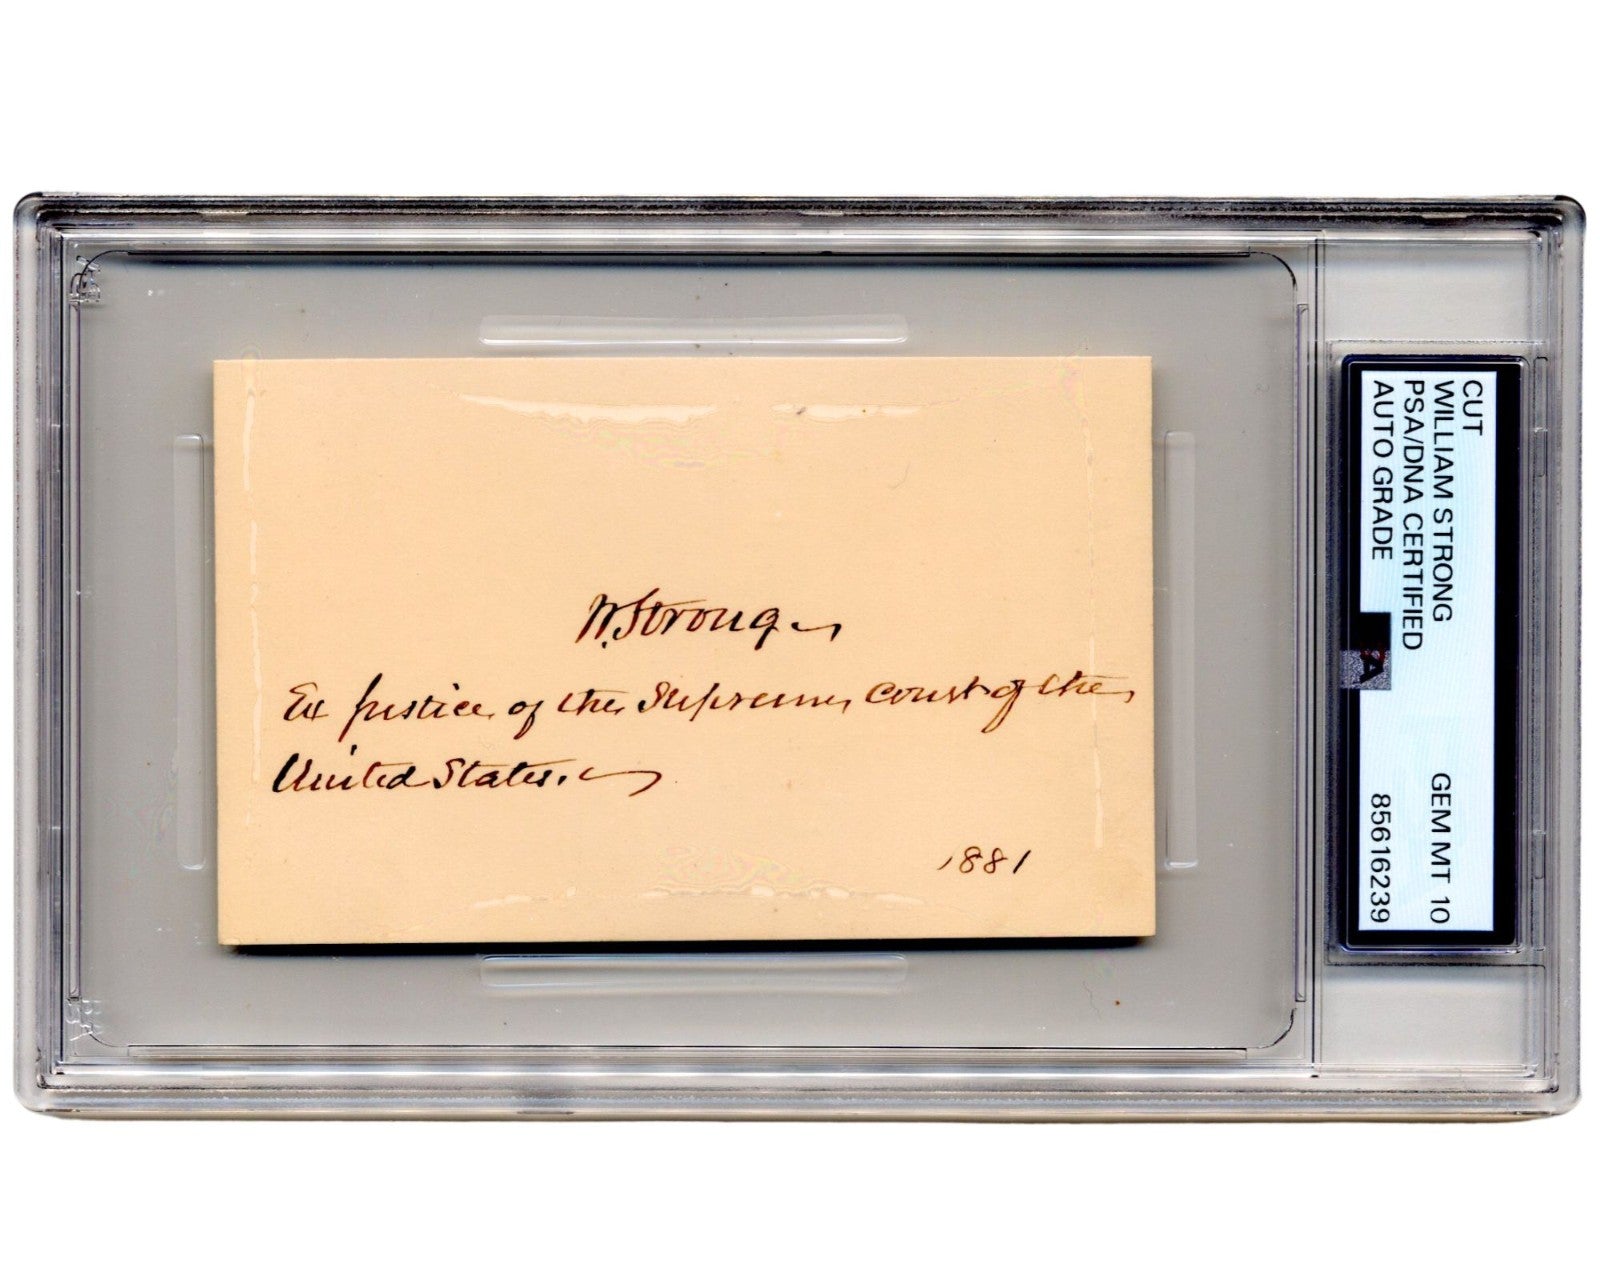 W. Strong
Ex Justice of the Supreme Court of the
United States.
1881
CUT
WILLIAM STRONG
PSA/DNA CERTIFIED GEM MT 10
AUTO GRADE 85616239